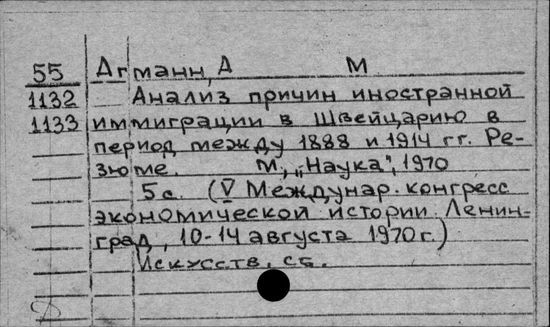 55 Агманн, А М
1132 Анализ причин иностранной
1133 иммиграции в Швейцарию в
период между 1888 и 1914 гг. Ре-
зюме. М., „Наука", 1970
5с. (V Междунар. конгресс
экономической истории. Ленин-
град, 10-14 августа 1970г.)
Искусств. сб.